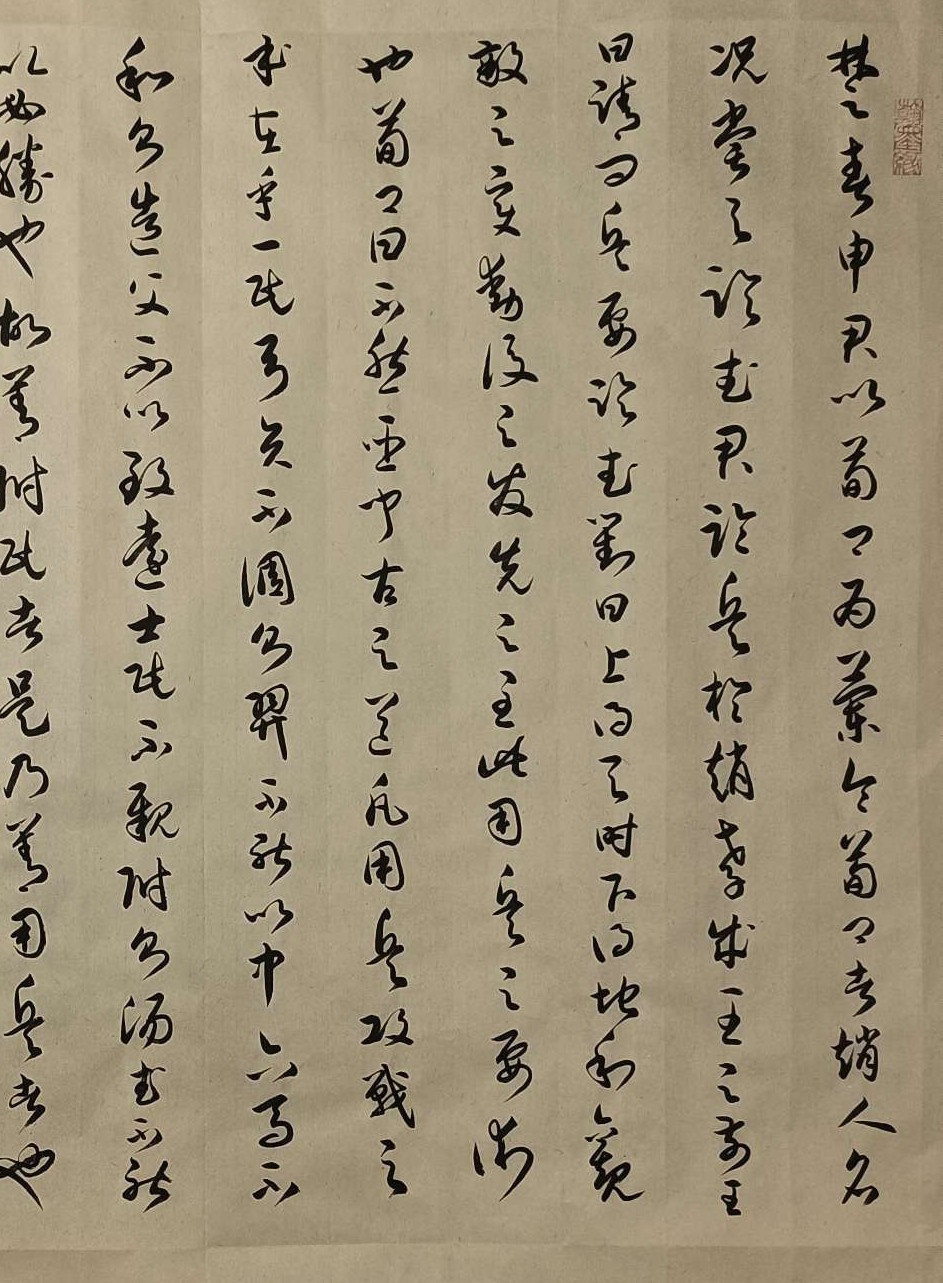 翰墨缘
楚春申君以荀卿為蘭令荀卿者趙人名
況嘗与臨武君論兵於趙孝成王之前王
曰請問兵要臨武對曰上得天時下得地利觀
敵之變動後之發先之至此用兵之要術
也荀卿曰不然臣聞古之道凡用兵攻戰之
本在乎一民弓矢不調則羿不能以中六馬不
和則造父不以致遠士民不親附則湯武不能
以必勝也故善附民者是乃善用兵者也